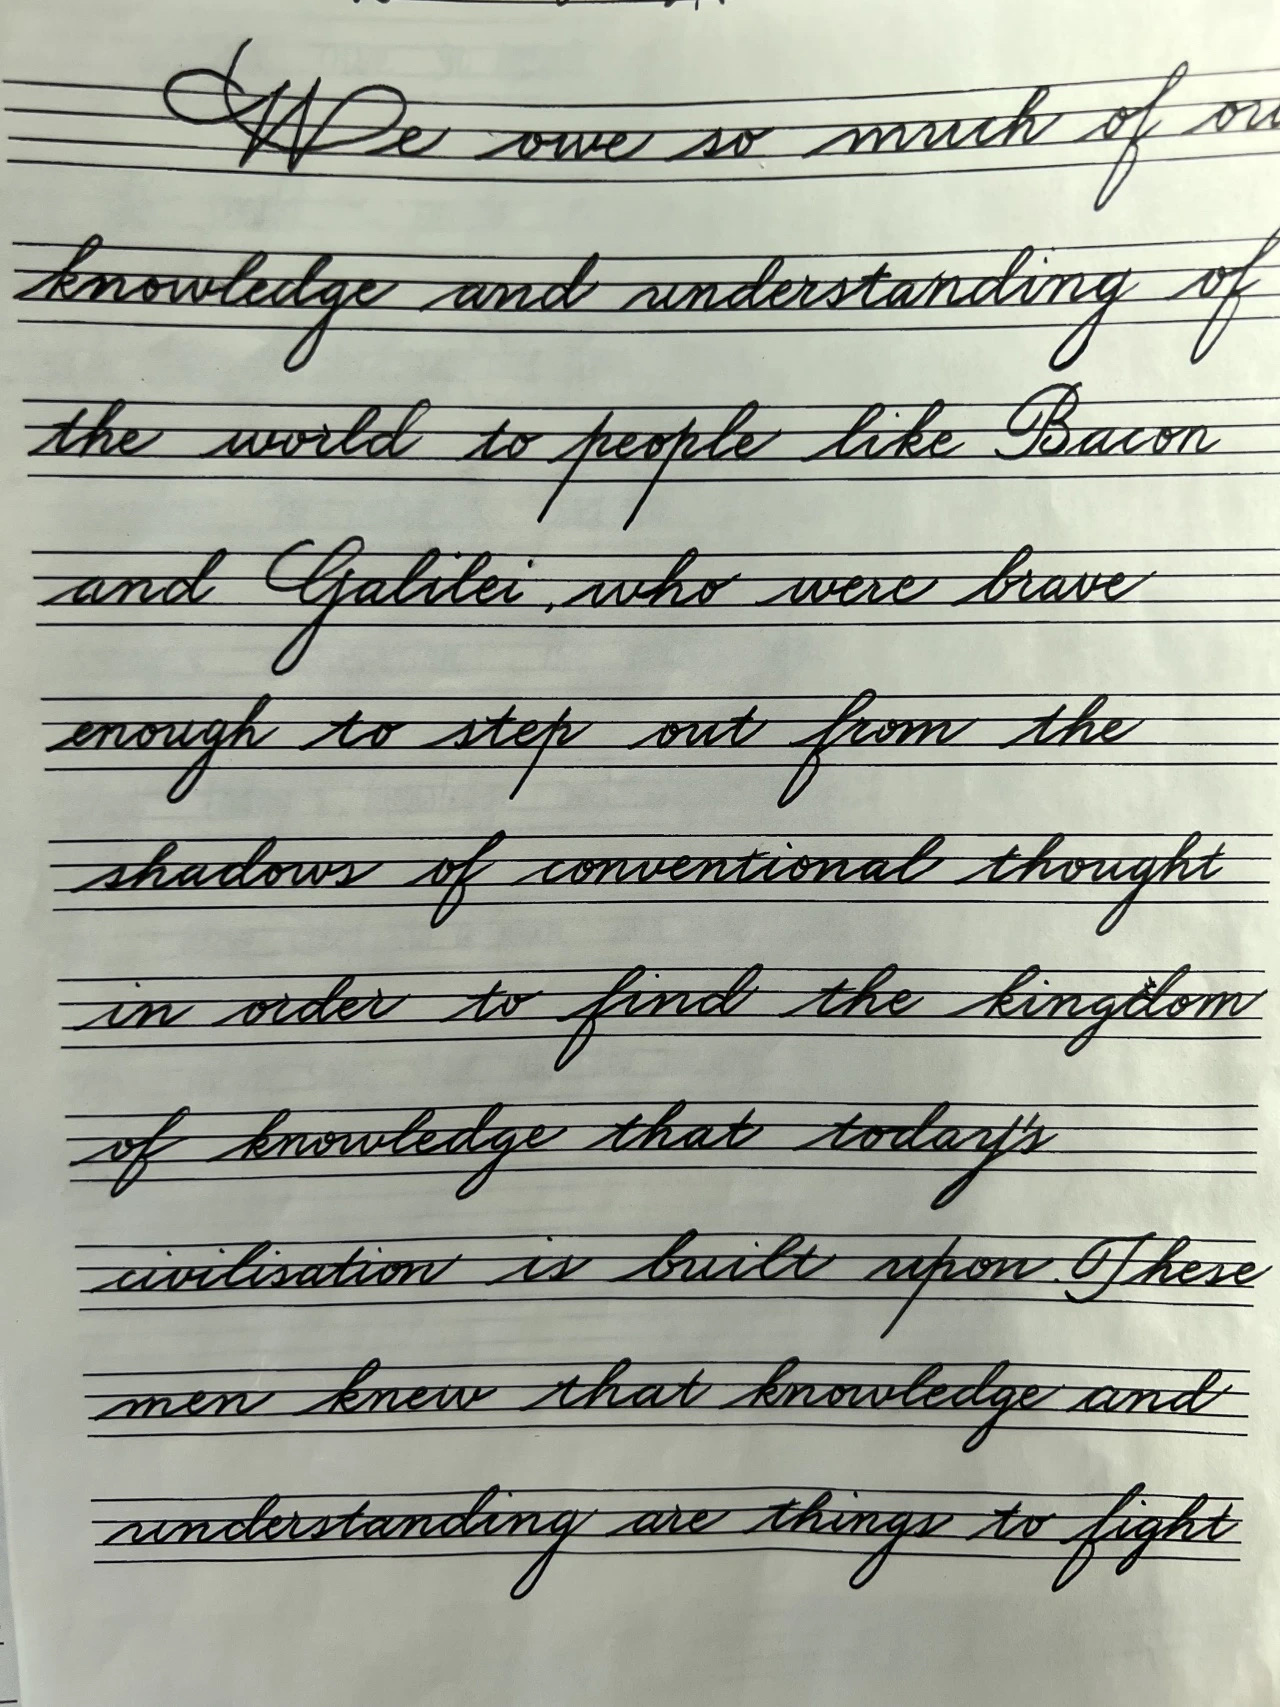 We owe so much of
knowledge and understanding of
the world to people like Bacon
and Galilei, who were brave
enough to step out from the
shadows of conventional thought
in order to find the kingdom
of knowledge that today's
civilisation is built upon. These
men knew that knowledge and
understanding are things to fight